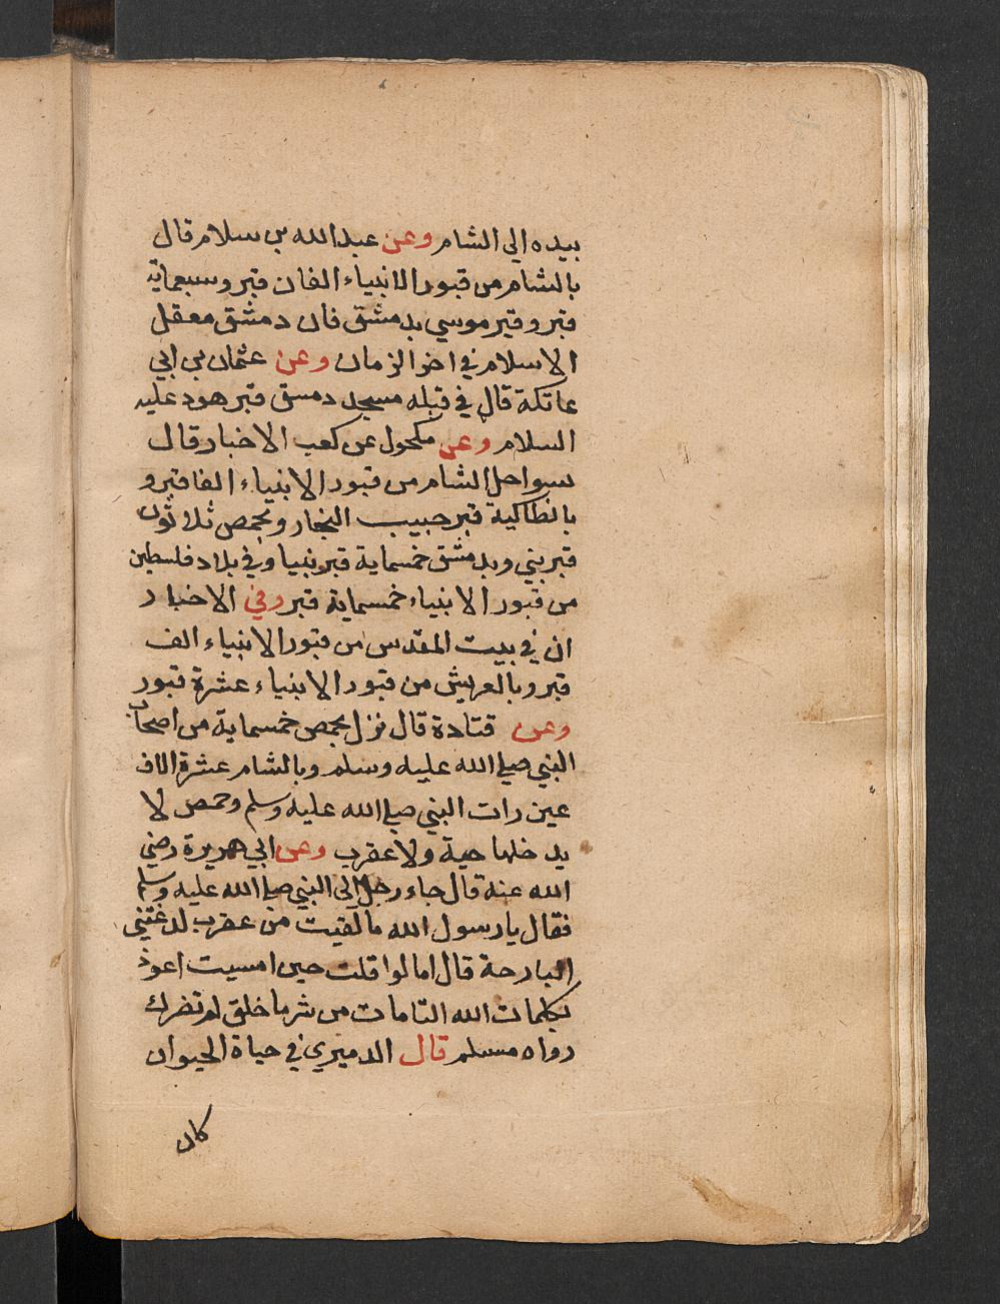 بيده الي الشام وعن عبد الله بن سلام قال
بالشام من قبور الانبياء الفان قبر وسبعماية
قبر وقبر موسي بدمشق فان دمشق معقل
الاسلام في اخر الزمان وعن عثمان بن ابي
عاتكة قال في قبله مسجد دمسق قبر هود عليه
السلام وعن مكحول عن كعب الاخبار قال
بسواحل الشام من قبور الانبياء الفا قبر و
بانطاكية قبر حبيب النجار وبحمص ثلاثون
قبر بني وبدمشق خمسماية قبر بنيا وفي بلاد فلسطين
من قبور الانبياء خمسماية قبر وفي الاخبار
ان في بيت المقدس من قبور الانبياء الف
قبر وبالعريش من قبور الانبياء عشرة قبور
وعن قتادة قال نزل بحمص خمسماية من اصحاب
البني صلي الله عليه وسلم وبالشام عشرة الاف
عين رات البني صلي الله عليه وسلم وحمص لا
يدخلها حية ولا عقرب وعن ابي هريرة رضي
الله عنه قال جاء رجل الي البني صلي الله عليه وسلم
فقال يا رسول الله ما لقيت من عقرب لدغتني
البارحة قال اما لو قلت حين امسيت اعوذ
بكلمات الله التامات من شر ما خلق لم تضرك
رواه مسلم قال الدميري في حياة الحيوان
كان